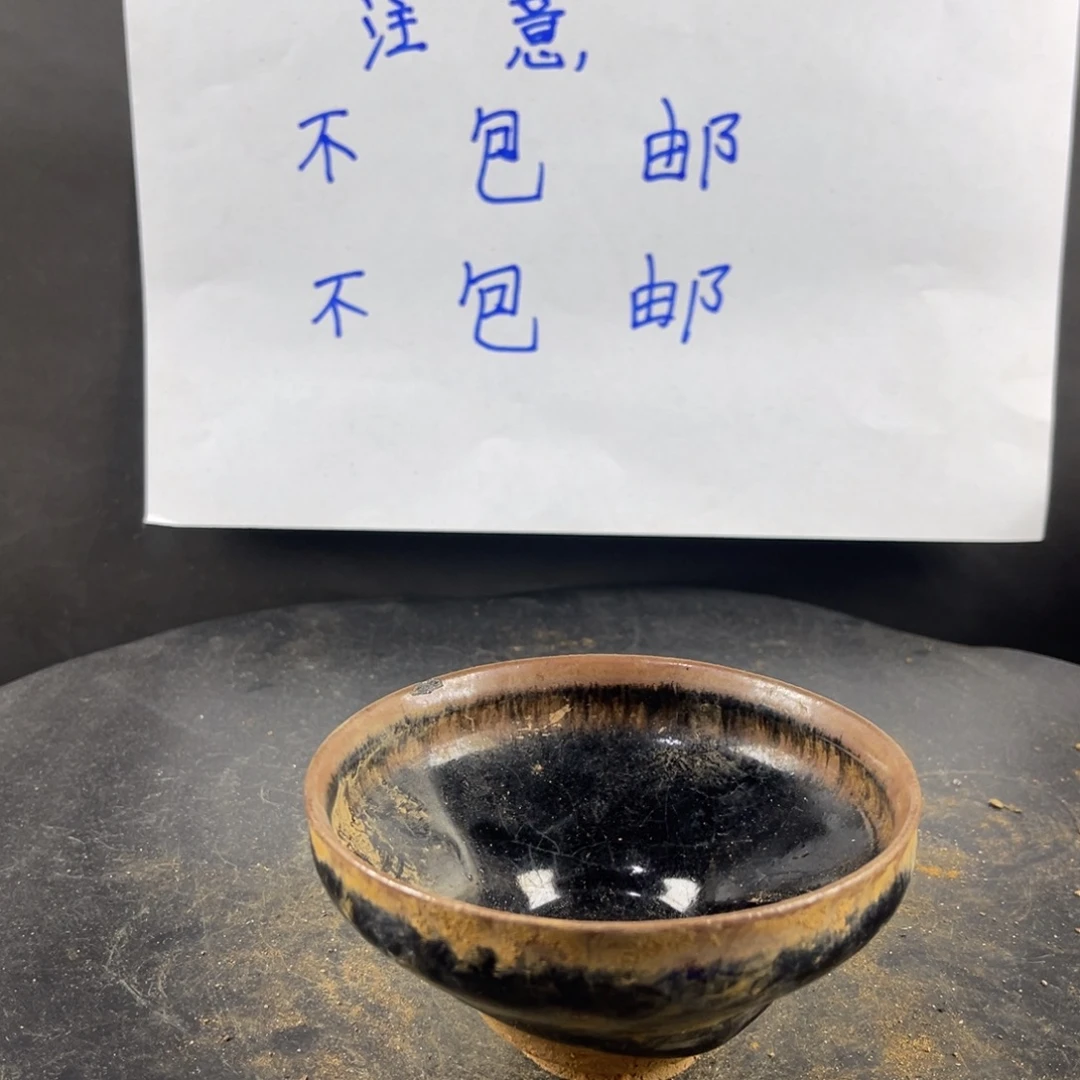 注意,
不包邮
不包邮